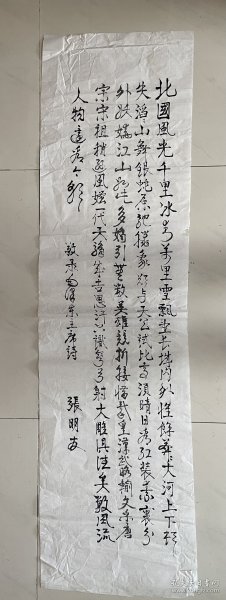 北國風光千里冰弓萬里雪飄望長城内外惟餘莽大河上下頓
失滔山舞銀蛇原馳蠟象欲与天公試比高須晴日看紅裝素裹分
外妖嬈江山如此多嬌引英雄競折腰惜秦皇漢武略輸文采唐
宗宋祖稍遜風騷一代天驕成吉思汗識弓射大雕俱往矣數風流
人物還看今朝
敬录毛澤東主席詩
張明友